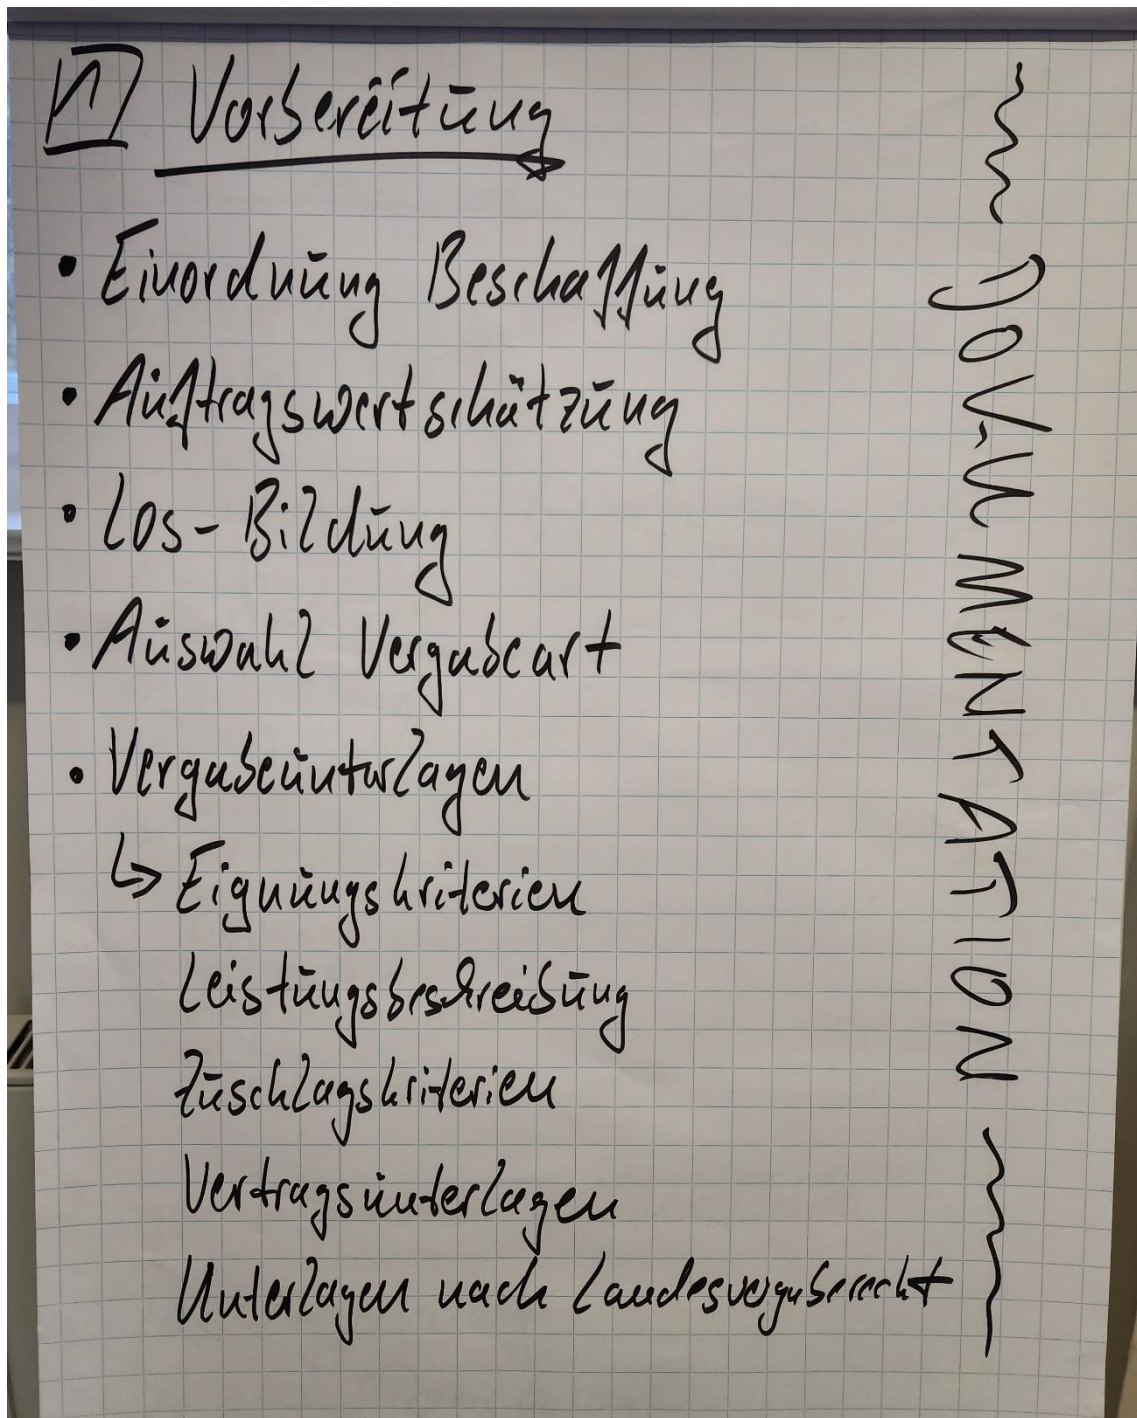 1 Vorbereitung
• Einordnung Beschaffung
• Auftragswertschätzung
• Los-Bildung
• Auswahl Vergabeart
• Vergabeunterlagen
↳ Eignungskriterien
Leistungsbeschreibung
Zuschlagskriterien
Vertragsunterlagen
Unterlagen nach Landesvergaberecht
DOKUMENTATION